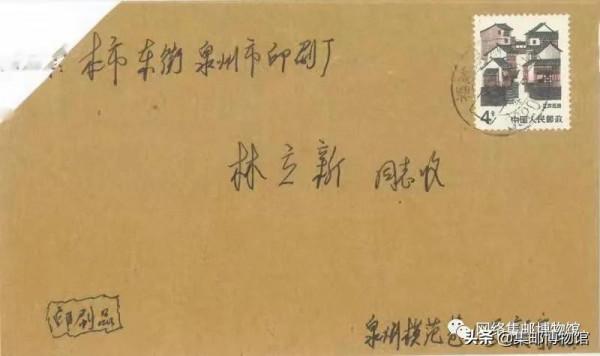 本市东街泉州市印刷厂
4分
江苏民居
中国人民邮政
林立新 同志收
印刷品
泉州模范巷
网络集邮博物馆
头条@集邮博物馆